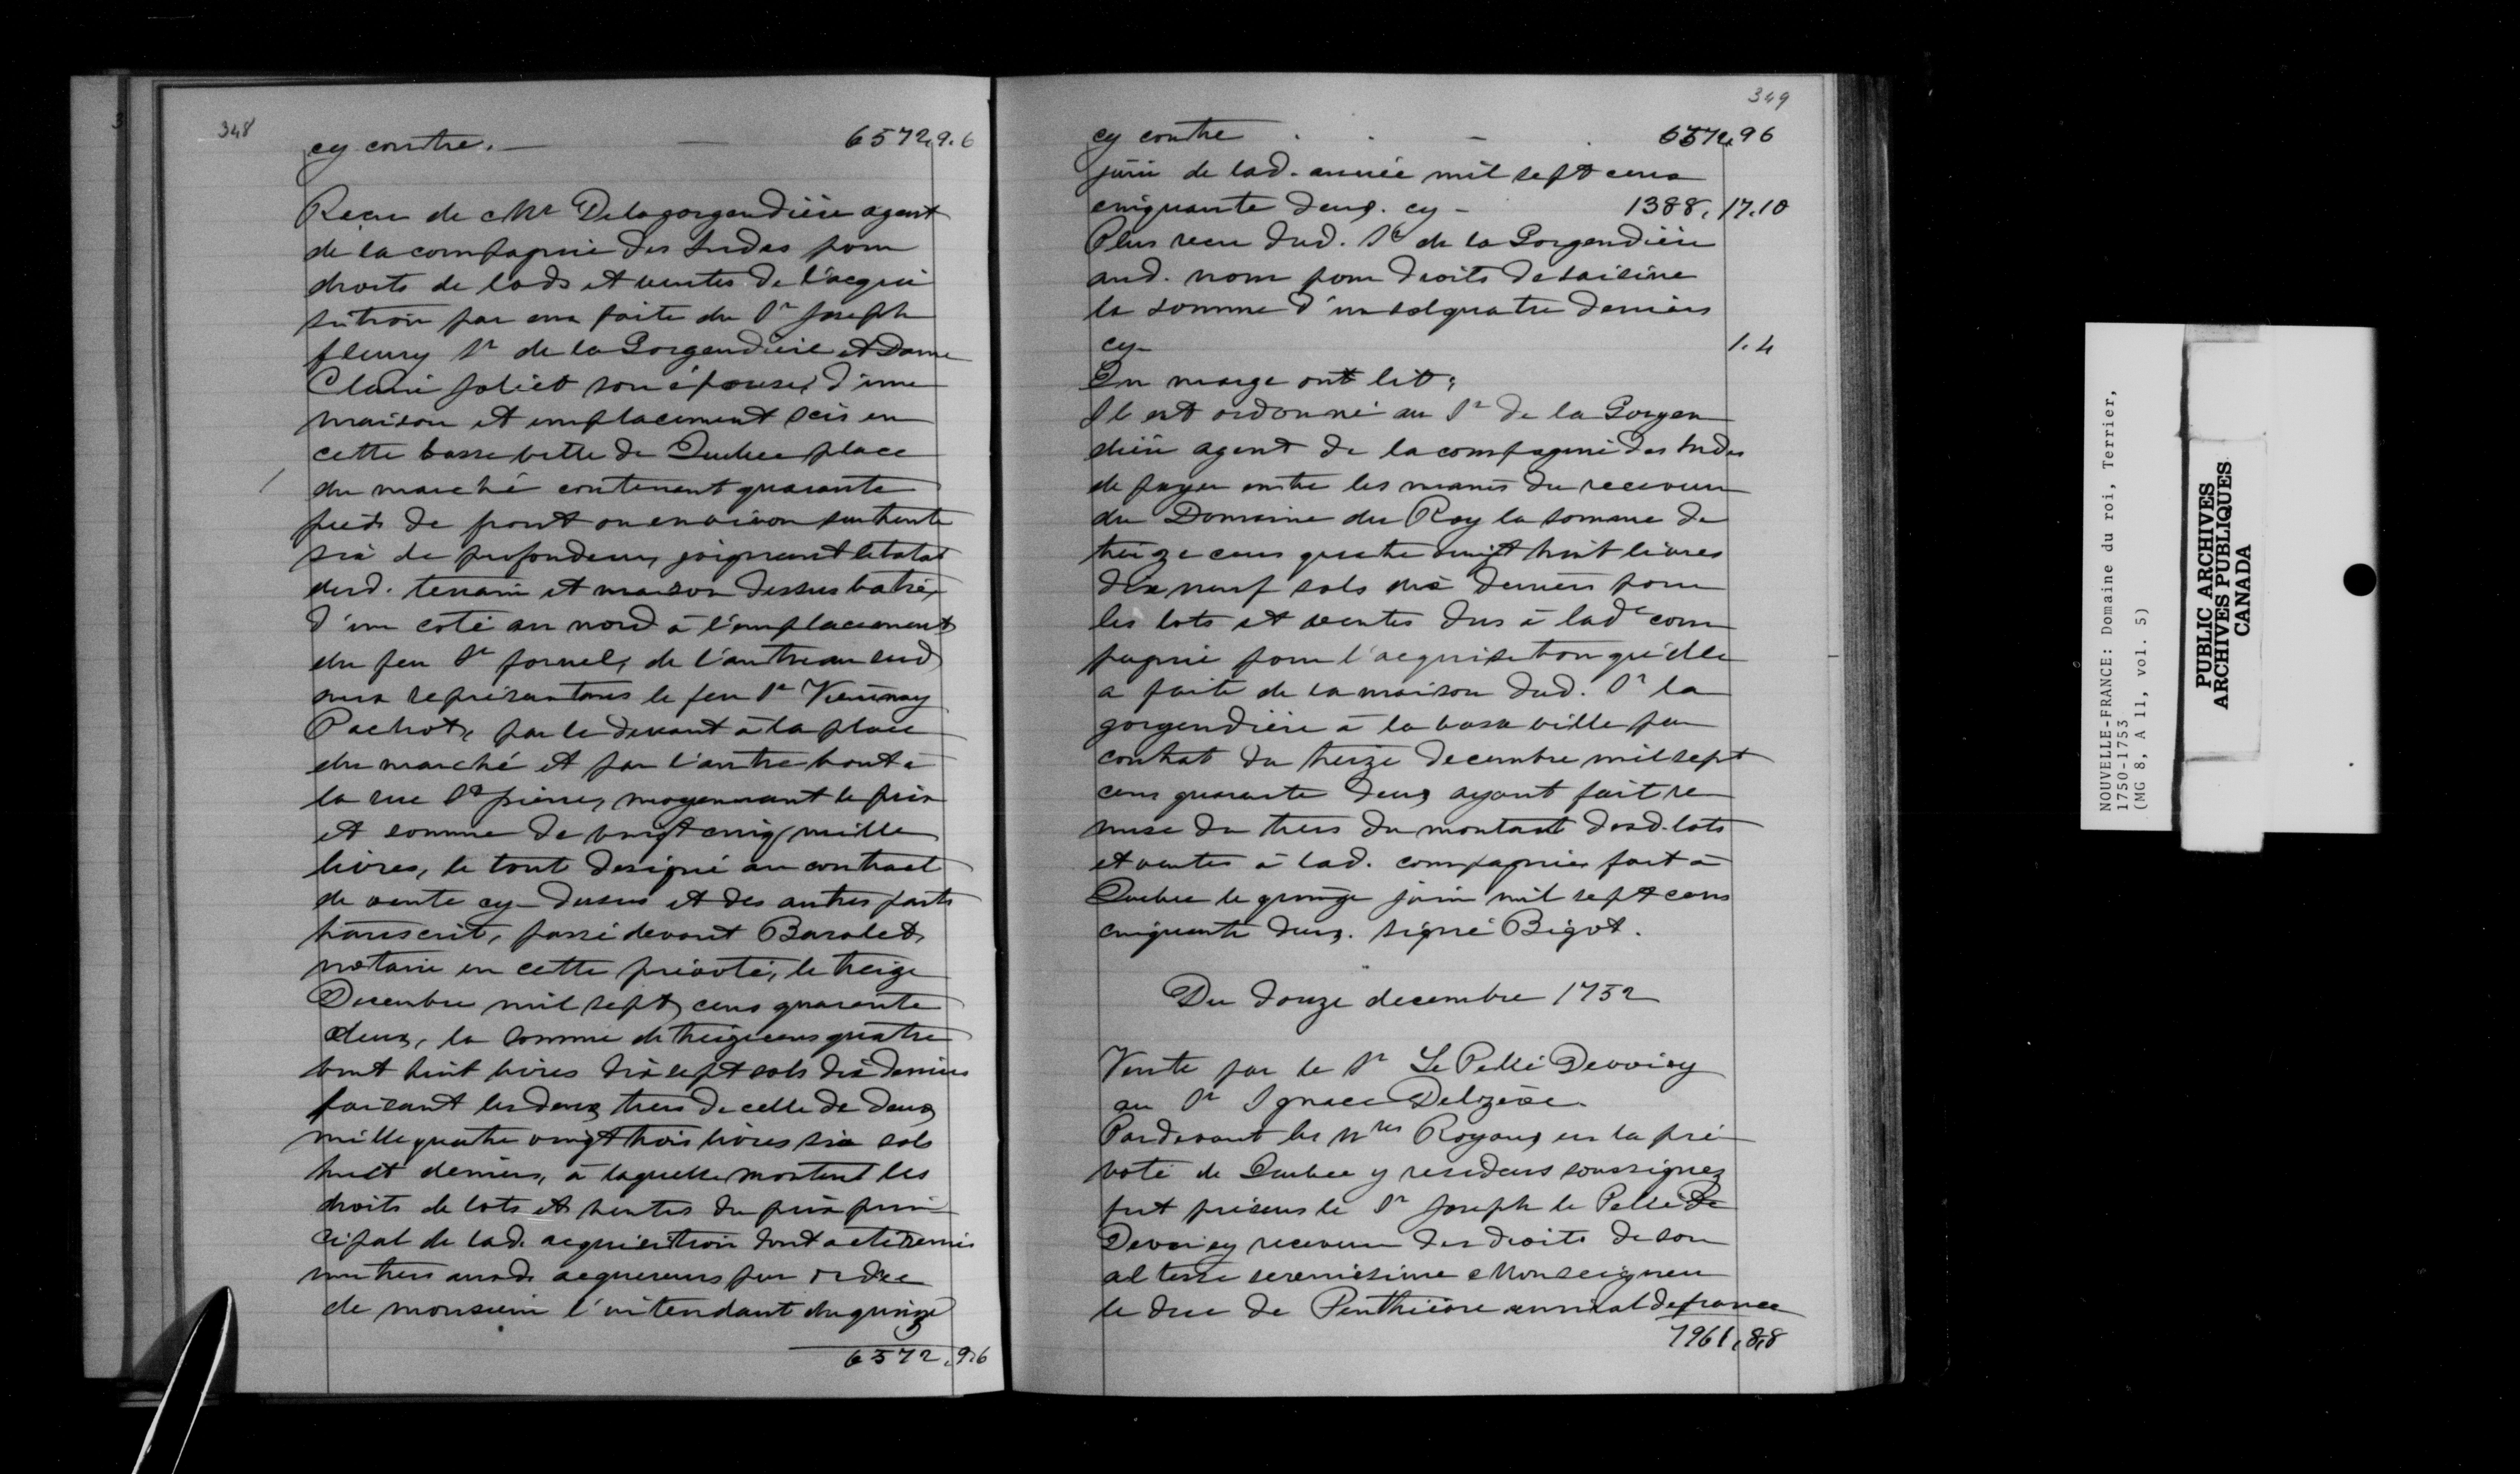 348
cy contre. — — 6572.9.6
Recu de Mr Delagorgendière agent
de la compagnie des Indes pour
droits de lods et ventes de l'acqui
sition par eux faite du Sr Joseph
fleury Sr de la Gorgendiere et Dame
Claire Joliet son épouse, d'une
maison et emplacement scis en
cette basse ville de Quebec place
du marché contenant quarante
pieds de front ou environ sur trente
six de profondeur, joignant letotal
dud. terrain et maison dessus batie,
d'un coté au nord à l'emplacement
du feu Sr fornel, de l'autre au sud
aux représentans le feu Sr Viennay
Pachot, par le devant à la place
du marché et par l'autre bout à
la rue St pierre, moyennant le prix
et somme de vingt cinq mille
livres, le tout designé au contract
de vente cy-dessus et des autres parts
transcrit, passé devant Barolet
notaire en cette prévoté, le treize
Decembre mil sept cens quarante
deux, la somme de treize cens quatre
vint huit livres dix sept sols dix deniers
faisant les deux tiers de celle de deux
mille quatre vingt trois livres six sols
huit deniers, à laquelle montent les
droits de lots et ventes du prix prin
cipal de lad. acquisition dont a eté remis
un tiers auxd. acquereurs par ordre
de monsieur l'intendant du quinze
6572.9.6
349
cy contre . . - . 6572.96
juin de lad. année mil sept cens
cinquante deux. cy - 1388.17.10
Plus recu dud. Sr de la Gorgendiere
aud. nom pour droits de saisine
la somme d'un sol quatre deniers
cy- 1.4
En marge ont lit:
Il est ordonné au Sr de la Gorgen
dière agent de la compagnie des Indes
de payer entre les mains du receveur
du Domaine du Roy la somme de
treize cens quatre vingt huit livres
dix neuf sols dix deniers pour
les lots et ventes dus à lade com
pagnie pour l'acquisition qu'elle
a faite de la maison dud. Sr la
gorgendière à la basse ville par
contrat du treize decembre mil sept
cens quarante deux ayant fait re
mise du tiers du montant desd. lots
et ventes à lad. compagnie fait à
Quebec le quinze juin mil sept cens
cinquante deux. signé Bigot.
Du douze decembre 1752
Vente par le Sr Le Pellé Devoisy
au Sr Ignace Delzéze
Pardevant les Nres Royaux en la pré
voté de Quebec y residens soussignez
fut présens le Sr Joseph le Pellé de
Devoisy receveur des droits de son
altesse serenissime Monseigneur
le duc de Penthièvre amiral de france
7961.8.8
NOUVELLE-FRANCE: Domaine du roi, Terrier,
1750-1753
(MG 8, A 11, vol. 5)
PUBLIC ARCHIVES
ARCHIVES PUBLIQUES
CANADA